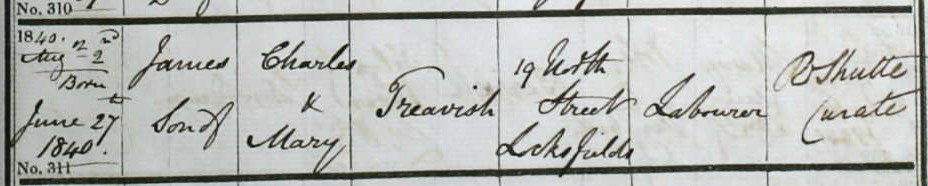 No. 310
1840.
Augst 2nd
Born
June 27th
1840.
No. 311
James
Son of
Charles
&
Mary
Treavish
19 North
Street
Locksfields
Labourer
R Shutte
Curate